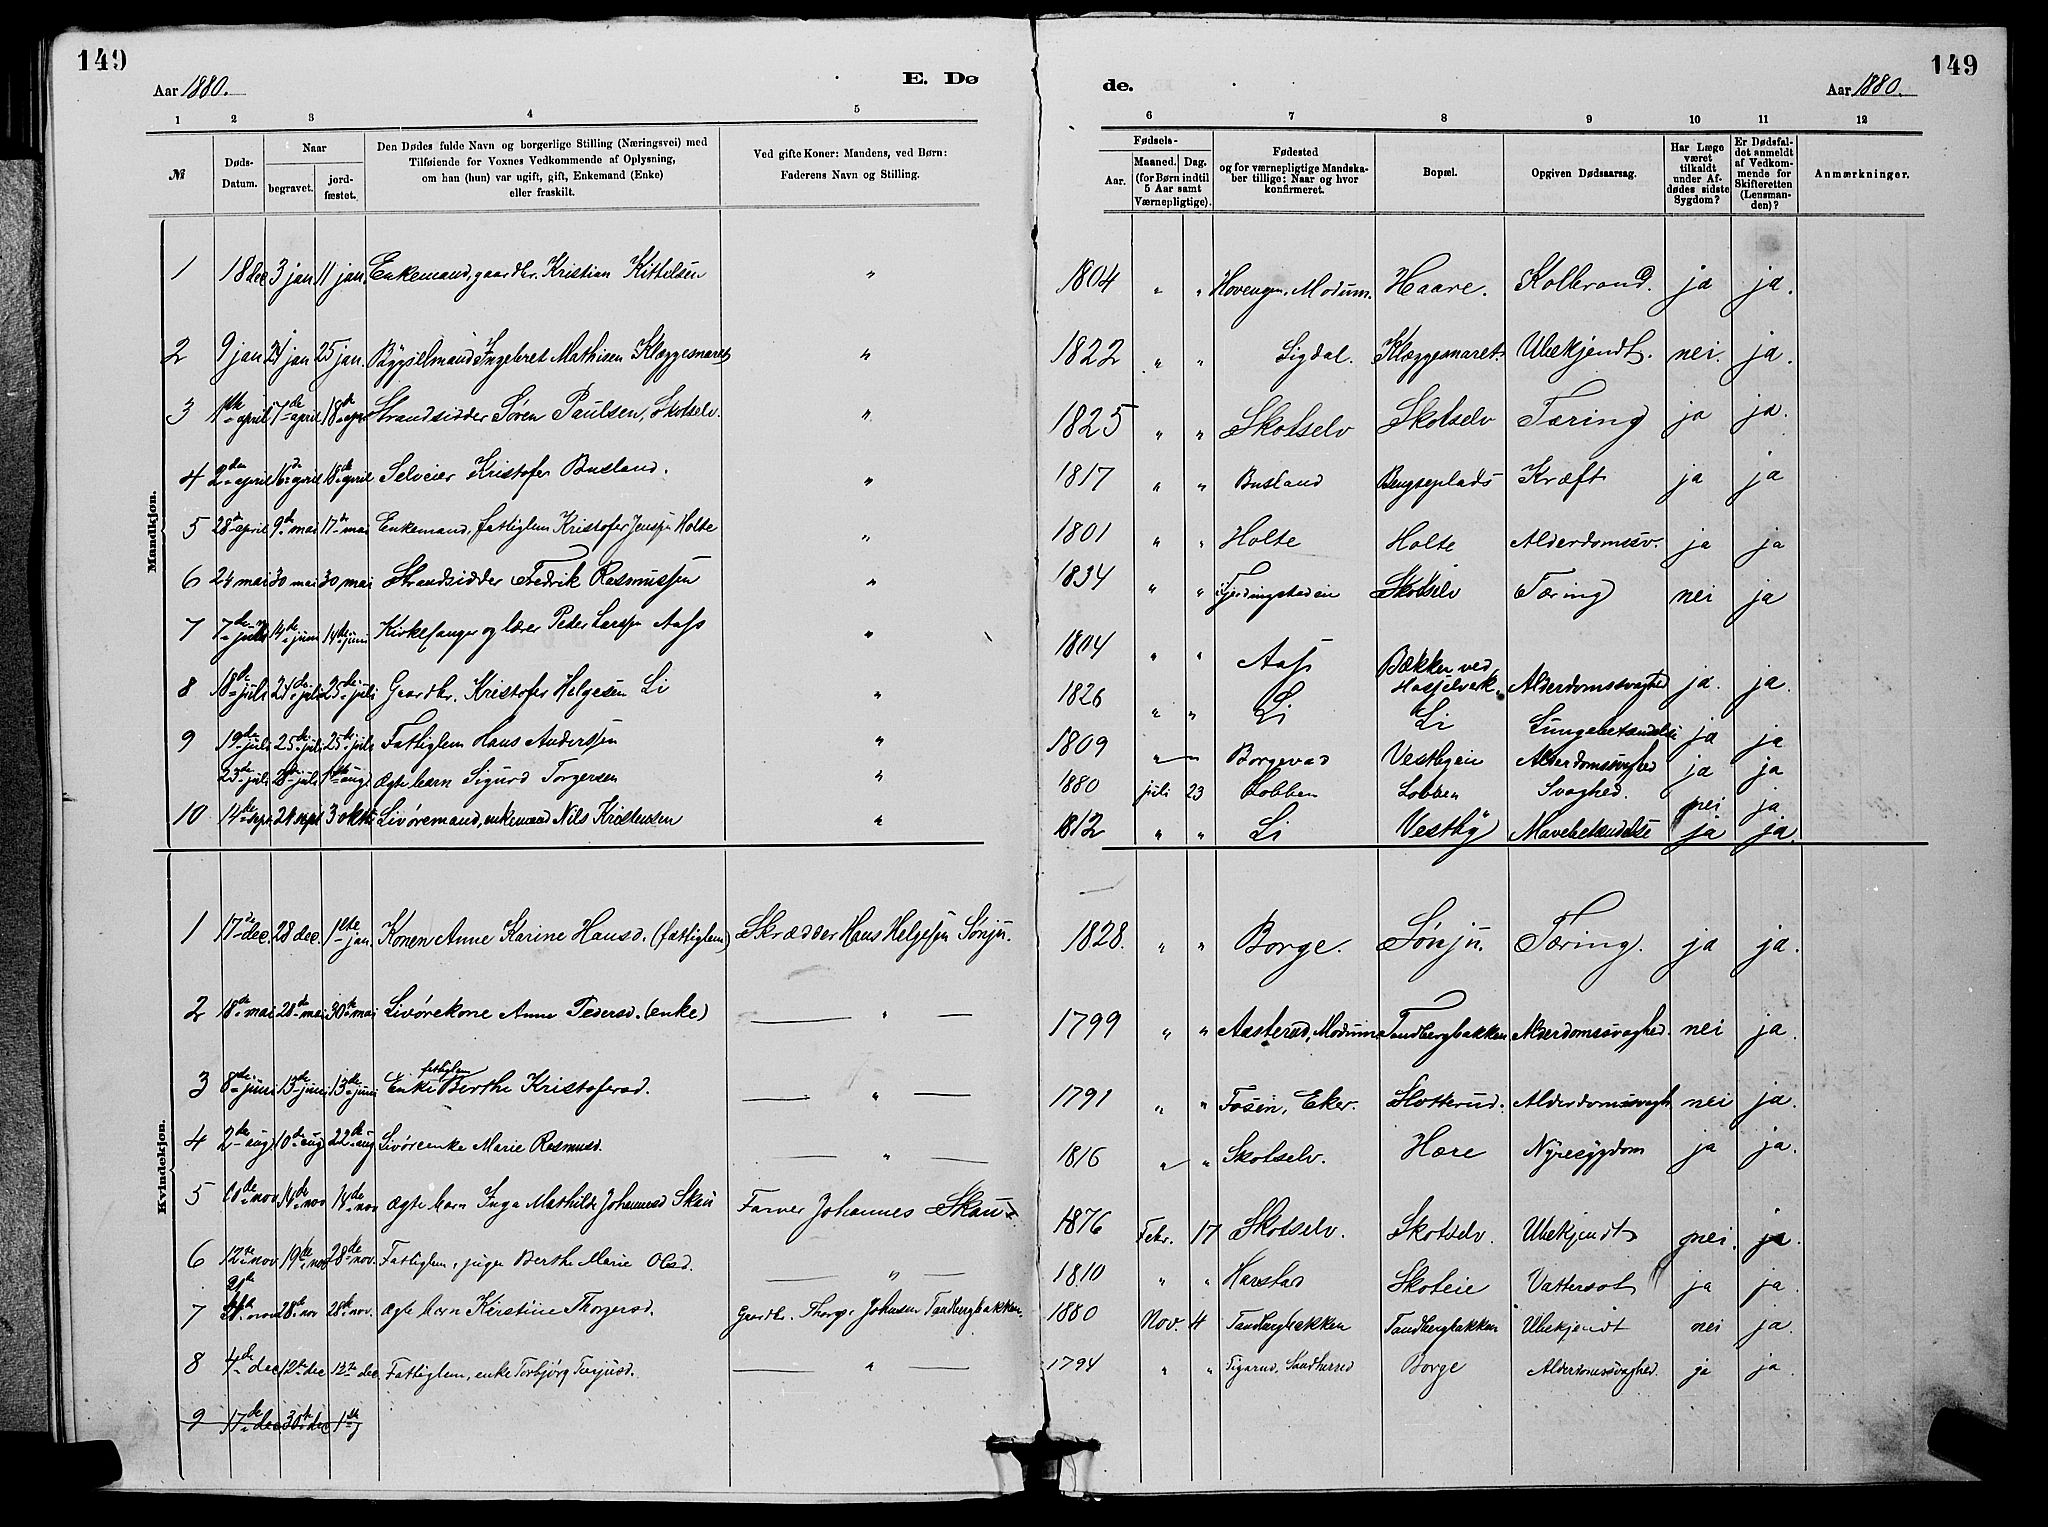 149
149
Aar 1880.
E. Dø
de.
Aar 1880.
1 2 3 4 5 6 7 8 9 10 11 12
№
Døds-Datum.
Naar
begravet.
jord-fæstet.
Den Dødes fulde Navn og borgerlige Stilling (Næringsvei) med
Tilføiende for Voxnes Vedkommende af Oplysning,
om han (hun) var ugift, gift, Enkemand (Enke)
eller fraskilt.
Ved gifte Koner: Mandens, ved Børn:
Faderens Navn og Stilling.
Fødsels-
Aar.
Maaned. Dag.
(for Børn indtil
5 Aar samt
Værnepligtige).
Fødested
og for værnepligtige Mandska-
ber tillige: Naar og hvor
konfirmeret.
Bopæl.
Opgiven Dødsaarsag.
Har Læge
været
tilkaldt
under Af-
dødes sidste
Sygdom?
Er Dødsfal-
det anmeldt
af Vedkom-
mende for
Skifteretten
(Lensman-
den)?
Anmærkninger.
Mandkjøn.
1 18 dec 3 jan 11 jan Enkemand, gaardbr. Kristian Kittelsen " 1804 " " Hovengen, Modum. Haare. Kolbrand. ja ja.
2 9 jan 24 jan 25 jan. Bygselmand Ingebret Mathisen Klæggesmaret " 1822 " " Sigdal. Klæggesmaret. Ubekjendt. nei. ja.
3 1ste april 7de april 18de apr Strandsidder Søren Paulsen, Skotselv. " 1825 " " Skotselv Skotselv Tæring ja ja.
4 2den april 16de april 18de april Selveier Kristofer Busland. " 1817 " " Busland Kræft ja ja
5 28de april 9de mai 17de mai Enkemand, fattiglem Kristofer Jenssen Holte " 1801 " " Holte Holte Alderdomssv. ja ja
6 24 mai 30 mai 30 mai Strandsidder Fredrik Rasmussen " 1834 " " Fjerdingstaden Skotselv Tæring nei ja
7 7de 14de juni 14de juni Kirkesanger og lærer Peder Larssen Aass " 1804 " " Aass Bækken ved Alderdomssvaghed ja. ja.
8 18de juli 24de juli 25de juli Gaardbr. Kristofer Helgesen Li " 1826 " " Li Li Lungebetændelse ja ja
9 19de juli 25de juli 25de juli Fattiglem Hans Anderssen " 1809 " " Borgevad Alderdomssvaghed ja ja
23de juli 28de juli 1ste aug Ægte barn Sigurd Torgersen " 1880 juli 23 Lobben Lobben Svaghed. nei ja
10 14de sept 24 sept 3 okt Livøremand, enkemand Nils Kristensen " 1812 " " Li Vestby Mavebetændelse ja ja.
Kvindekjøn.
1 17de dec. 28 dec. 1ste jan. Konen Anne Karine Hansd. (fattiglem) Skrædder Hans Helgesen Sønju. 1828. " " Borge. Sønju. Tæring. ja ja.
2 18de mai 28de mai 30te mai Livørekone Anne Pedersd. (enke) " 1799 " " Aasterud, Modum Tandbergbakken Alderdomssvaghed. nei ja.
3 8de juni 13de juni 13de juni Enke fattiglem Berthe Kristofersd. " 1791 " " Fosen, Eker. Slotterud. Alderdomssvagh nei ja.
4 2den aug 10de aug 22de aug Livøreenke Marie Rasmusd. " 1816 " " Skotselv. Hære Nyresygdom ja ja.
5 10de nov 14de nov 14de nov Ægte barn Inga Mathilde Johannesd Skau Farver Johannes Skau 1876 Febr. 17 Skotselv. Skotselv. Ubekjendt nei. ja.
6 12te nov 19de nov 28de nov. Fattiglem, pige Berthe Marie Olsd. " 1810 " " Harstad Skoteie Vattersot ja ja.
7 nov 28de nov 28de nov. Ægte barn Kirstine Thorgersd. Gaardbr. Thorger Johnsen Tandbergbakken. 1880 Nov. 4 Tandbergbakken Tandbergbakken Ubekjendt nei ja.
8 4de dec 12te dec 12te dec. Fattiglem, enke Torbjørg Terjusd. " 1794 " " Borge Alderdomssvaghed. ja ja.
9 17de dec 30te dec 1ste j